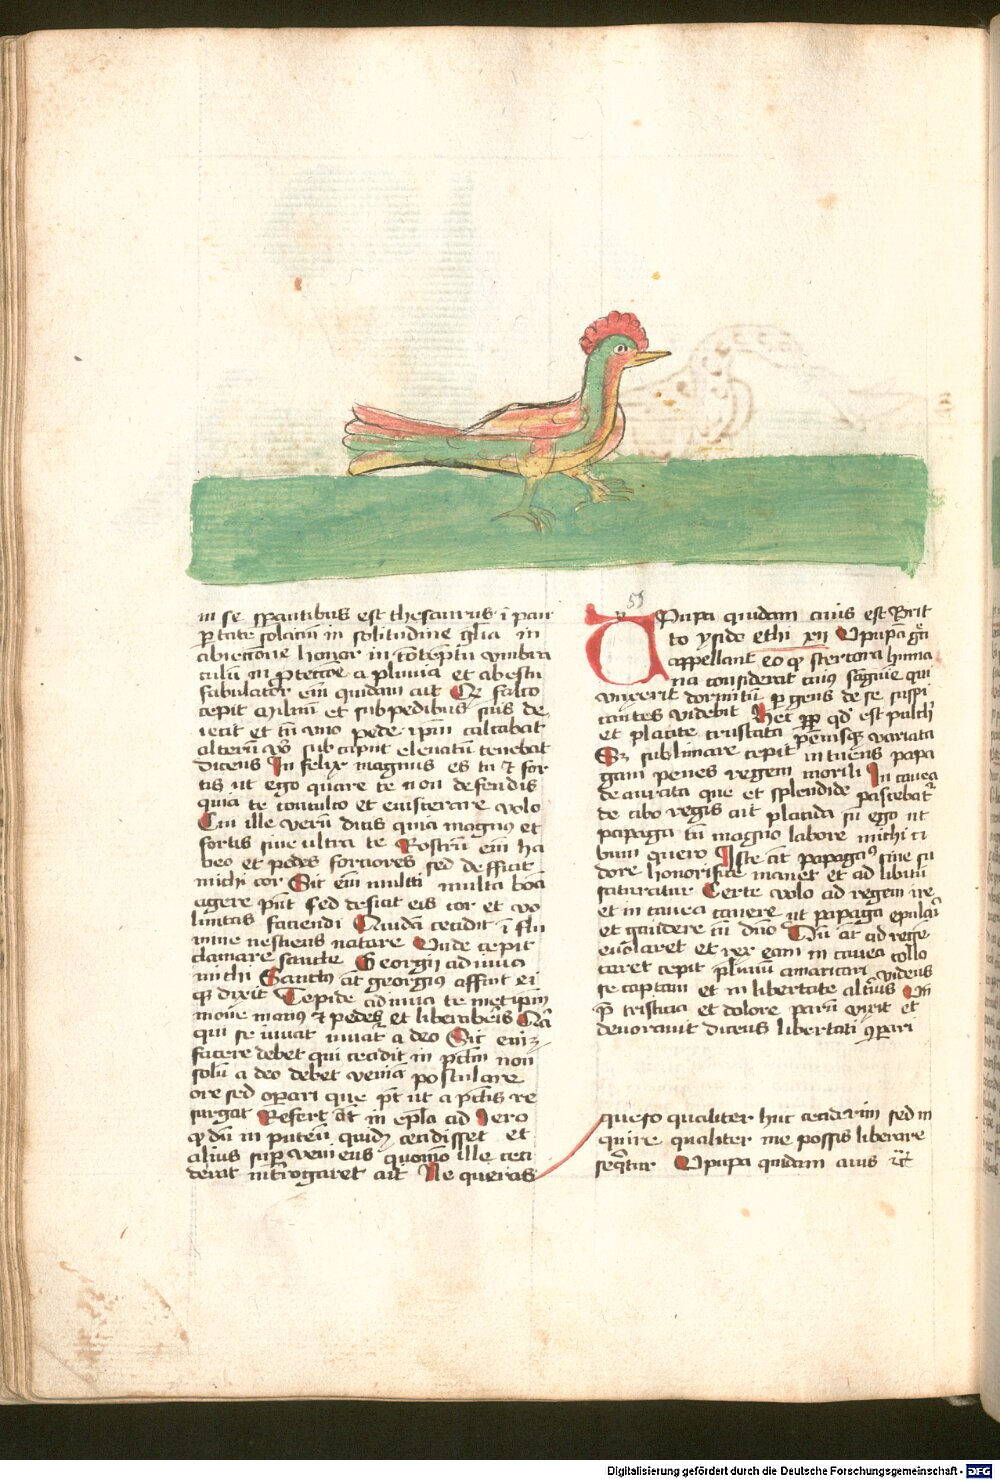 in se sperantibus est thesaurus i pau
pertate solaciu in solitudine gloria in
abiectione honor in contemptu umbra
culu in protectione a pluvia et ab estu
fabulatur eni quidam ait Quod falco
cepit miluu et sub pedibus suis de
iecit et tn uno pede ipm calcabat
alteru vo sub caput elevatu tenebat
dicens In felix magnus es tu et for
tis ut ego quare te non defendis
quia te conculco et eviscerare volo
Cui ille veru dicis quia magnus et
fortis sive ultra te Rostru eni ha
beo et pedes fortiores sed defficit
michi cor Sic eni multi multa bona
agere pnt sed deficit eis cor et vo
luntas faciendi Quidam cecidit i flu
mine nesciens natare Unde cepit
clamare sancte Georgii adiuva
michi Sanctus at georgius affuit ei
q dixit Cepide adiuva te metipm
move manus et pedes et liberaberis Quia
qui se iuvat iuvat a deo Sic eni
facere debet qui cecidit in pctm non
solu a deo debet venia postulare
ore sed operari que pt ut a pctis re
surgat Refert at in epla ad Jero
q du in puteu quidam cecidisset et
alius superveniens quomo ille ceci
derat introgaret ait Ne queras
55
Upupa quidam avis est Brit
to ysido ethi xii Upupa gci
appellant eo q stercora huma
na considerat cuius sanguine qui
unxerit dormitu pergens de se suspi
cantes videbit Hec pp qd est pulch
et placite cristata pennisque variata
Se sublimare cepit intuens papa
gam penes regem morili In cavea
deaurata que et splendide pascebatur
de cibo regis ait placida su ego ut
papaga tn magno labore michi ci
bum quero Iste at papagaus sine su
dore honorifice manet et ad libitu
saturatur Certe volo ad regem ire
et in cavea cavere ut papaga epular
et gaudere in dno Du at ad rege
evolaret et rex eam in cavea collo
caret cepit plurimu amaricari videns
se captam et in libertate alterius Un
pre tristicia et dolore paru vixit et
devoravit dicens libertati 9pari
queso qualiter huc ceciderim sed in
quire qualiter me possis liberare
sequitur Upupa quidam avis etc
Digitalisierung gefördert durch die Deutsche Forschungsgemeinschaft - DFG